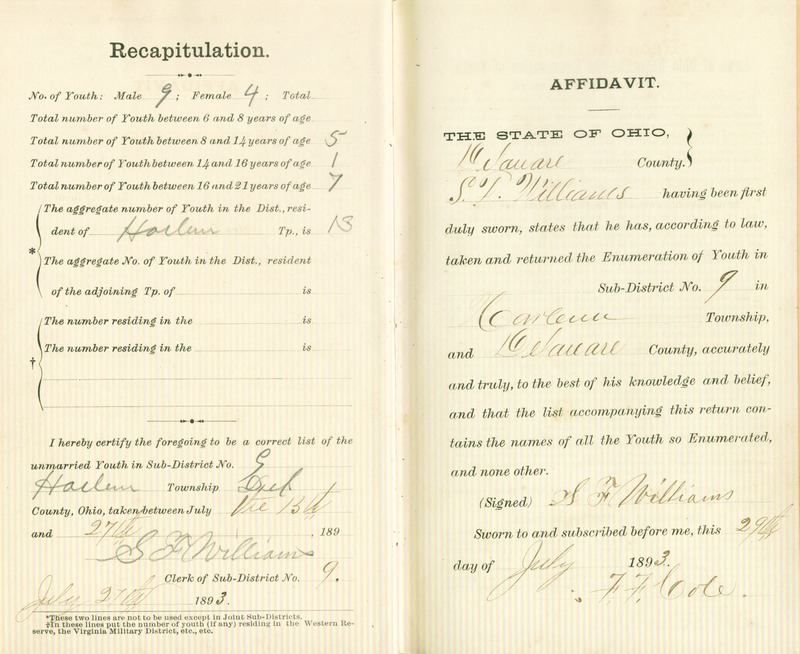 Recapitulation.
No. of Youth: Male 9; Female 4; Total
Total number of Youth between 6 and 8 years of age
Total number of Youth between 8 and 14 years of age 5
Total number of Youth between 14 and 16 years of age 1
Total number of Youth between 16 and 21 years of age 7
The aggregate number of Youth in the Dist., resi-
dent of Harlem Tp., is 13
*
The aggregate No. of Youth in the Dist., resident
of the adjoining Tp. of is
The number residing in the is
The number residing in the is
†
I hereby certify the foregoing to be a correct list of the
unmarried Youth in Sub-District No. 9
Harlem Township Del
County, Ohio, taken between July the 13th
and 27th, 189
S F Williams
Clerk of Sub-District No. 9.
July 27th 1893.
*These two lines are not to be used except in Joint Sub-Districts.
†In these lines put the number of youth (if any) residing in the Western Re-
serve, the Virginia Military District, etc., etc.
AFFIDAVIT.
THE STATE OF OHIO,
Delaware County.
S. F. Williams having been first
duly sworn, states that he has, according to law,
taken and returned the Enumeration of Youth in
Sub-District No. 9 in
Harlem Township,
and Delaware County, accurately
and truly, to the best of his knowledge and belief,
and that the list accompanying this return con-
tains the names of all the Youth so Enumerated,
and none other.
(Signed) S F Williams
Sworn to and subscribed before me, this 29th
day of July 1893.
F. F. Cole.